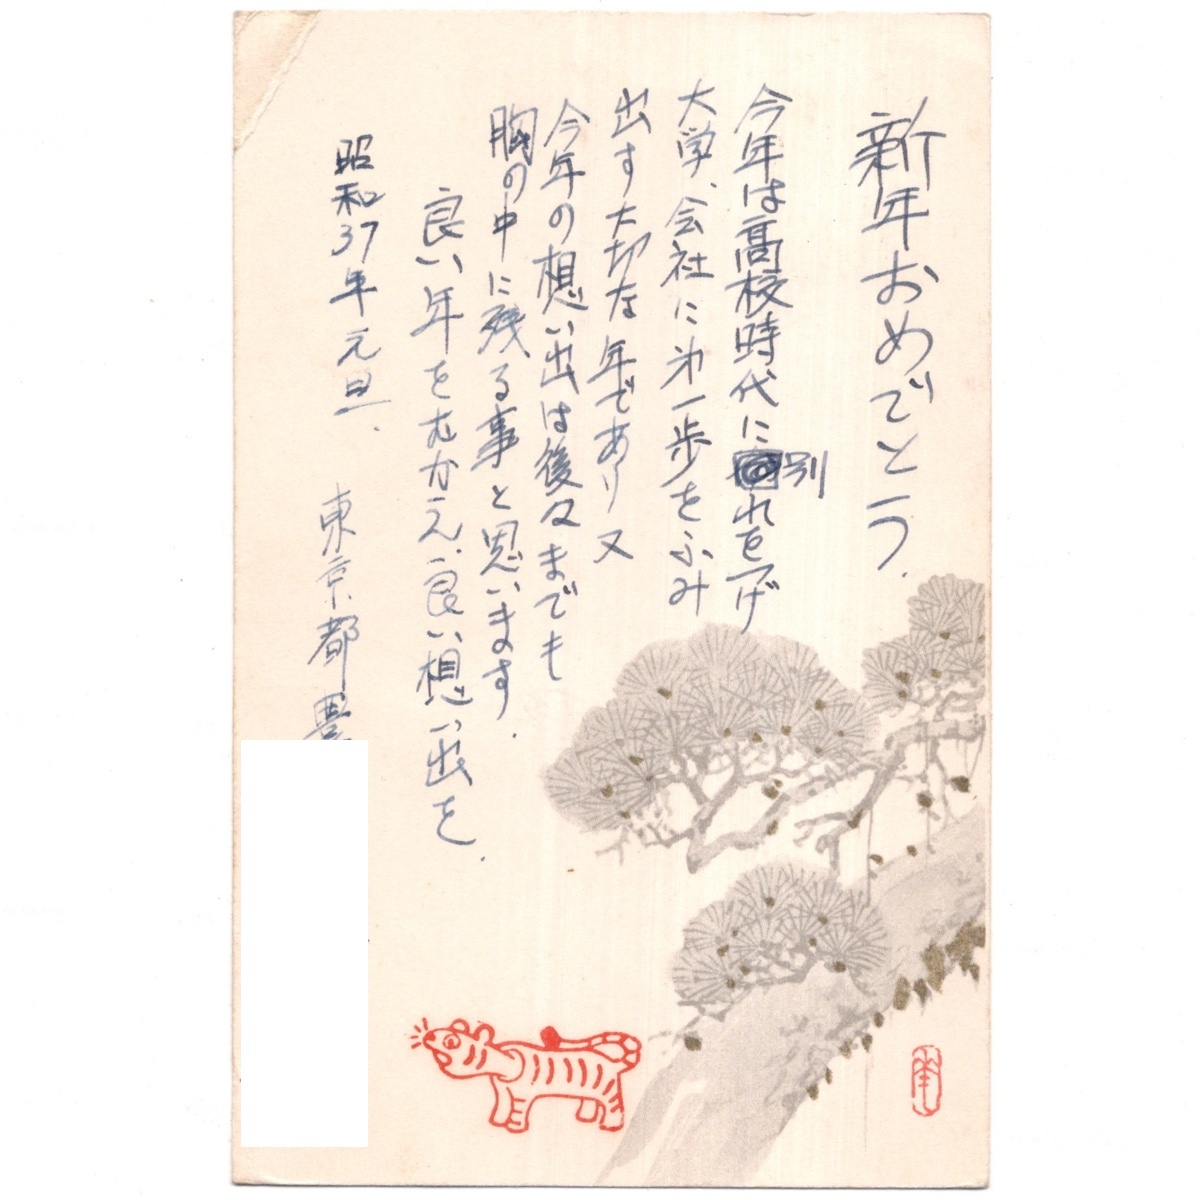 新年おめでとう.
今年は高校時代に別れをつげ
大学、会社に㐧一歩をふみ
出す大切な年であり又
今年の想い出は後々までも
胸の中に残る事と思います.
良い年をむかえ、良い想い出を.
昭和37年元旦.
東京都豊